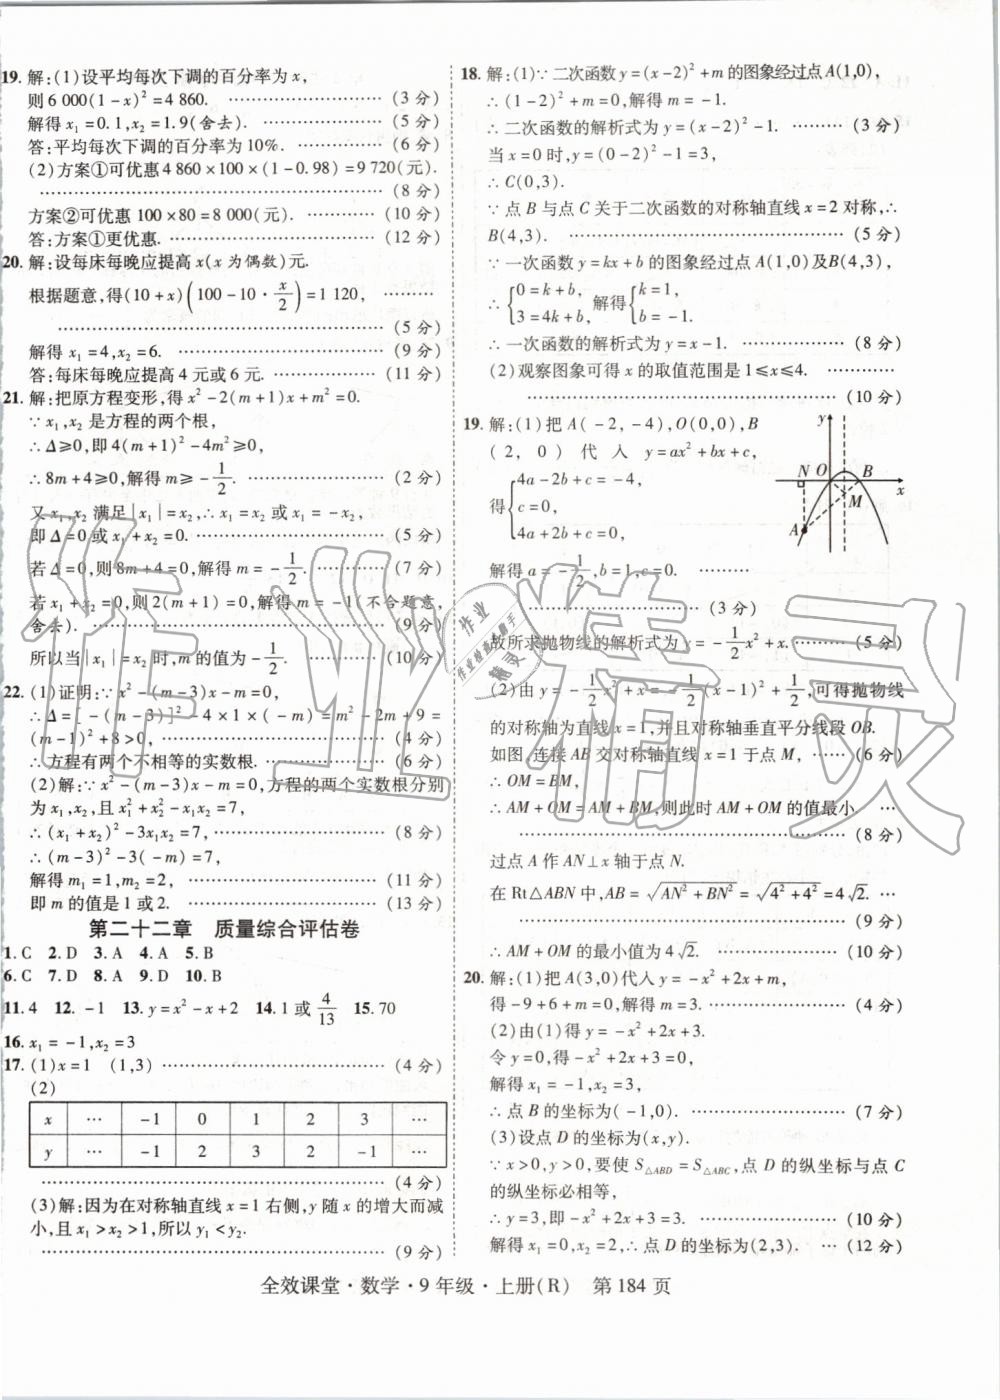 19. 解:(1)设平均每次下调的百分率为 x,
则 6 000(1-x)²=4 860. ………………… (3 分)
解得 x₁=0.1,x₂=1.9(舍去). ………… (5 分)
答:平均每次下调的百分率为 10%. …… (6 分)
(2)方案①可优惠 4 860×100×(1-0.98)=9 720(元).
………………………………………… (8 分)
方案②可优惠 100×80=8 000(元). ………… (10 分)
答:方案①更优惠. ………………………… (12 分)
20. 解:设每床每晚应提高 x(x 为偶数)元.
根据题意,得(10+x)(100-10·x/2)=1 120, ………
………………………………………… (5 分)
解得 x₁=4,x₂=6. ………………………… (9 分)
答:每床每晚应提高 4 元或 6 元. ………… (11 分)
21. 解:把原方程变形,得 x²-2(m+1)x+m²=0.
∵x₁,x₂ 是方程的两个根,
∴Δ≥0,即 4(m+1)²-4m²≥0,
∴8m+4≥0,解得 m≥-1/2. ………………… (2 分)
又 x₁,x₂ 满足|x₁|=x₂,∴x₁=x₂ 或 x₁=-x₂,
即 Δ=0 或 x₁+x₂=0. …………………… (5 分)
若 Δ=0,则 8m+4=0,解得 m=-1/2. …… (7 分)
若 x₁+x₂=0,则 2(m+1)=0,解得 m=-1(不合题意,
舍去). ………………………………… (9 分)
所以当|x₁|=x₂ 时,m 的值为-1/2. …… (10 分)
22. (1)证明:∵x²-(m-3)x-m=0,
∴Δ=[-(m-3)]²-4×1×(-m)=m²-2m+9=
(m-1)²+8>0, ………………………… (4 分)
∴方程有两个不相等的实数根. ………… (6 分)
(2)解:∵x²-(m-3)x-m=0,方程的两个实数根分别
为 x₁,x₂,且 x₁²+x₂²-x₁x₂=7,
∴(x₁+x₂)²-3x₁x₂=7, ………………… (8 分)
∴(m-3)²-3(-m)=7,
解得 m₁=1,m₂=2, ……………………… (11 分)
即 m 的值是 1 或 2. …………………… (13 分)
第二十二章 质量综合评估卷
1. C 2. D 3. A 4. A 5. B
6. C 7. D 8. A 9. D 10. B
11. 4 12. -1 13. y=x²-x+2 14. 1 或 4/13 15. 70
16. x₁=-1,x₂=3
17. (1)x=1 (1,3) ………………………… (4 分)
(2)
x … -1 0 1 2 3 …
y … -1 2 3 2 -1 …
………………………………………… (4 分)
(3)解:因为在对称轴直线 x=1 右侧,y 随 x 的增大而减
小,且 x₁>x₂>1,所以 y₁<y₂.
………………………………………… (9 分)
18. 解:(1)∵二次函数 y=(x-2)²+m 的图象经过点 A(1,0),
∴(1-2)²+m=0,解得 m=-1.
∴二次函数的解析式为 y=(x-2)²-1. ……… (3 分)
当 x=0 时,y=(0-2)²-1=3,
∴C(0,3).
∵点 B 与点 C 关于二次函数的对称轴直线 x=2 对称,∴
B(4,3). ………………………………… (5 分)
∵一次函数 y=kx+b 的图象经过点 A(1,0)及B(4,3),
∴{0=k+b, 3=4k+b, 解得{k=1, b=-1.
∴一次函数的解析式为 y=x-1. ………… (8 分)
(2)观察图象可得 x 的取值范围是 1≤x≤4. …………
………………………………………… (10 分)
19. 解:(1)把 A(-2,-4),O(0,0),B
(2,0)代入 y=ax²+bx+c,
得{4a-2b+c=-4, c=0, 4a+2b+c=0.
解得 a=-1/2,b=1,c=0. ………
………………… (3 分)
故所求抛物线的解析式为 y=-1/2x²+x. …… (5 分)
(2)由 y=-1/2x²+x=-1/2(x-1)²+1/2,可得抛物线
的对称轴为直线 x=1,并且对称轴垂直平分线段 OB.
如图,连接 AB 交对称轴直线 x=1 于点 M, …… (6 分)
∴OM=BM,
∴AM+OM=AM+BM=AB,则此时 AM+OM 的值最小. …
………………………………………… (8 分)
过点 A 作 AN⊥x 轴于点 N.
在 Rt△ABN 中,AB=√(AN²+BN²)=√(4²+4²)=4√2. …
………………………………………… (9 分)
∴AM+OM 的最小值为 4√2. …………… (10 分)
y
N O B x
M
A
20. 解:(1)把 A(3,0)代入 y=-x²+2x+m,
得-9+6+m=0,解得 m=3. ……………… (4 分)
(2)由(1)得 y=-x²+2x+3.
令 y=0,得-x²+2x+3=0,
解得 x₁=-1,x₂=3,
∴点 B 的坐标为(-1,0). ………………… (7 分)
(3)设点 D 的坐标为(x,y).
∵x>0,y>0,要使 S△ABD=S△ABC,点 D 的纵坐标与点 C
的纵坐标必相等,
∴y=3,即-x²+2x+3=3. ……………… (10 分)
解得 x₁=0,x₂=2,∴点 D 的坐标为(2,3). … (12 分)
全效课堂·数学·9 年级·上册(R) 第 184 页
作业精灵